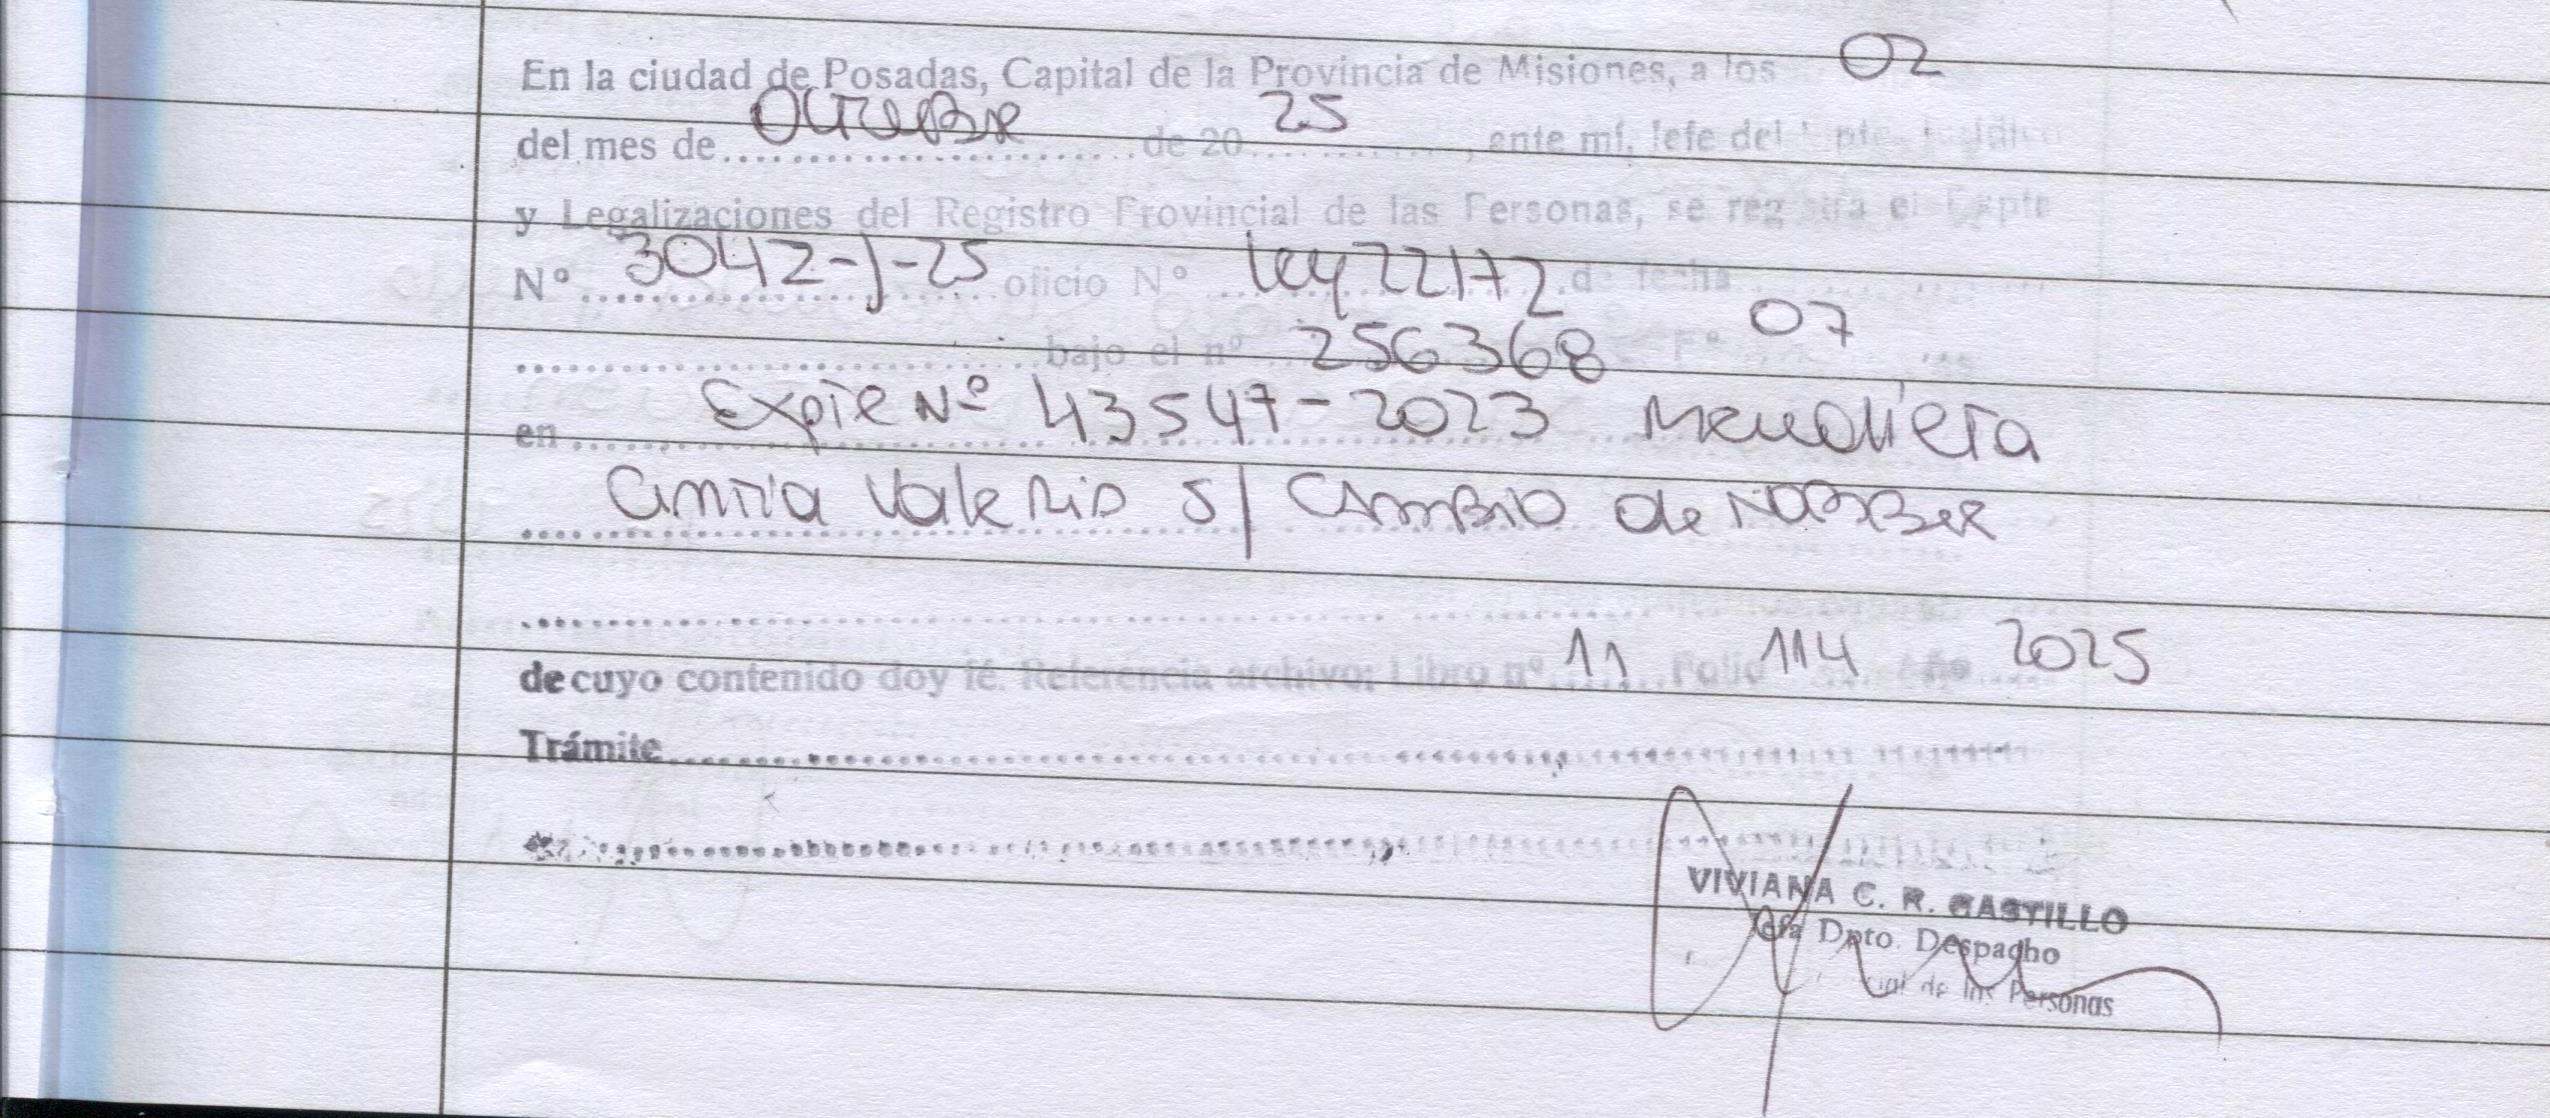 En la ciudad de Posadas, Capital de la Provincia de Misiones, a los 02
del mes de Octubre de 20 25, ante mí, Jefe del Dpto. Jurídico
y Legalizaciones del Registro Provincial de las Personas, se registra el Expte
Nº 3042-J-25 oficio Nº Ley 22172 de fecha
bajo el nº 256368 Fº 07
en Expte Nº 43547-2023 Mendieta
Cintia Valeria s/ Cambio de Nombre
de cuyo contenido doy fé. Referencia archivo: Libro nº 11 Folio 114 Año 2025
Trámite
VIVIANA C. R. CASTILLO
Jefa Dpto. Despacho
de las Personas